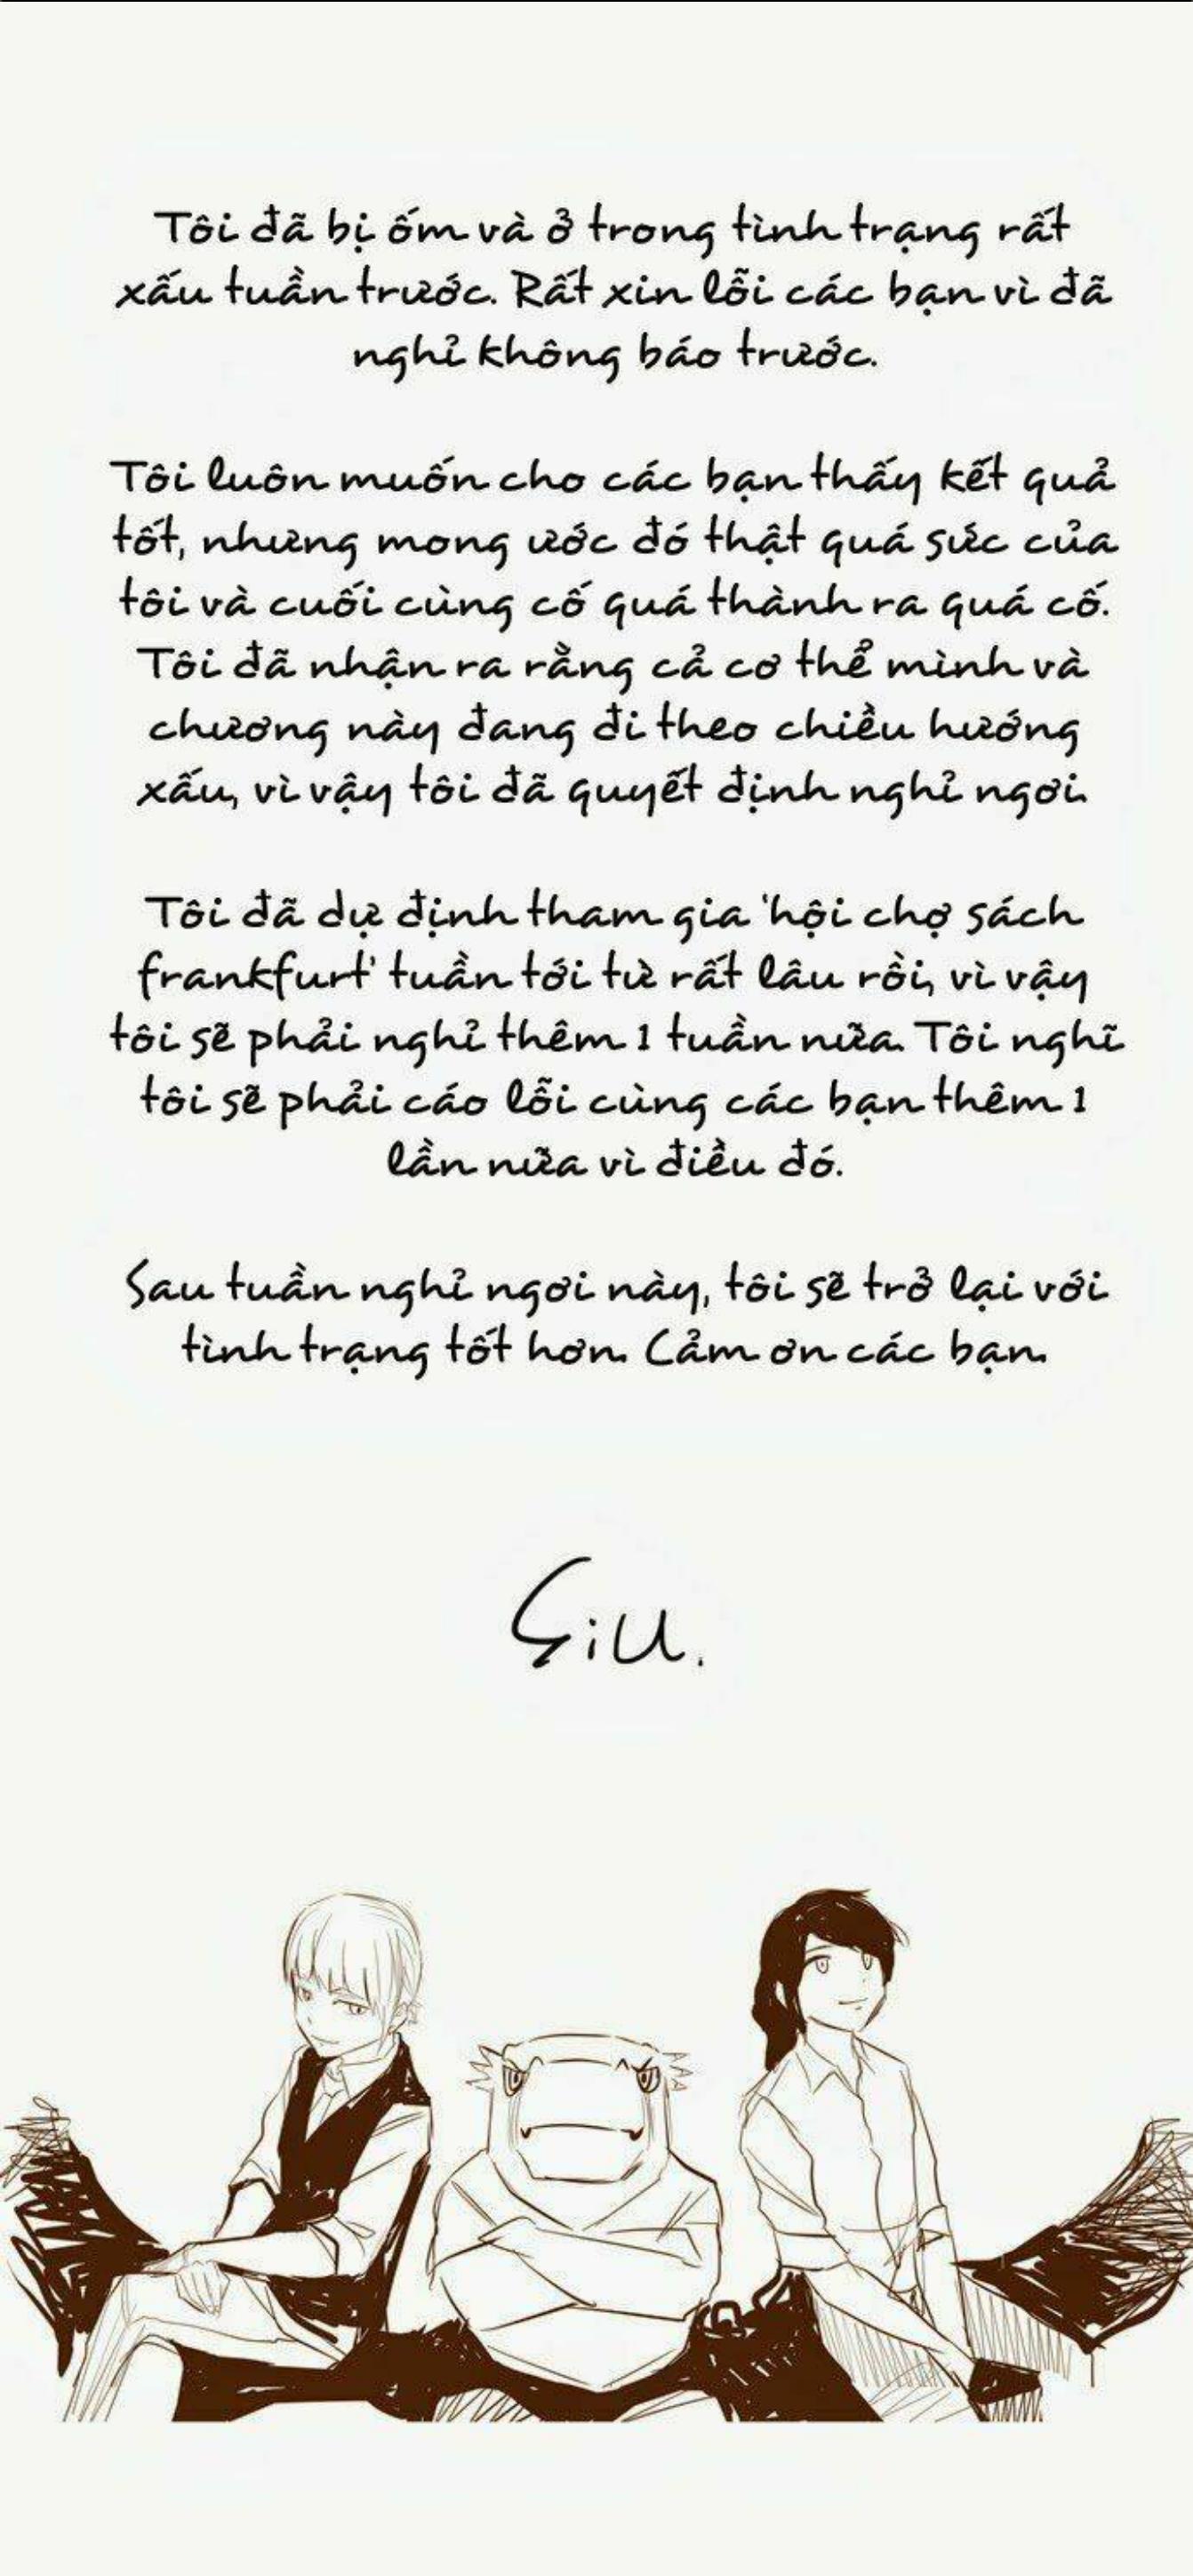 Tôi đã bị ốm và ở trong tình trạng rất
xấu tuần trước. Rất xin lỗi các bạn vì đã
nghỉ không báo trước.
Tôi luôn muốn cho các bạn thấy kết quả
tốt, nhưng mong ước đó thật quá sức của
tôi và cuối cùng cố quá thành ra quá cố.
Tôi đã nhận ra rằng cả cơ thể mình và
chương này đang đi theo chiều hướng
xấu, vì vậy tôi đã quyết định nghỉ ngơi.
Tôi đã dự định tham gia 'hội chợ sách
frankfurt' tuần tới từ rất lâu rồi, vì vậy
tôi sẽ phải nghỉ thêm 1 tuần nữa. Tôi nghĩ
tôi sẽ phải cáo lỗi cùng các bạn thêm 1
lần nữa vì điều đó.
Sau tuần nghỉ ngơi này, tôi sẽ trở lại với
tình trạng tốt hơn. Cảm ơn các bạn.
SiU.